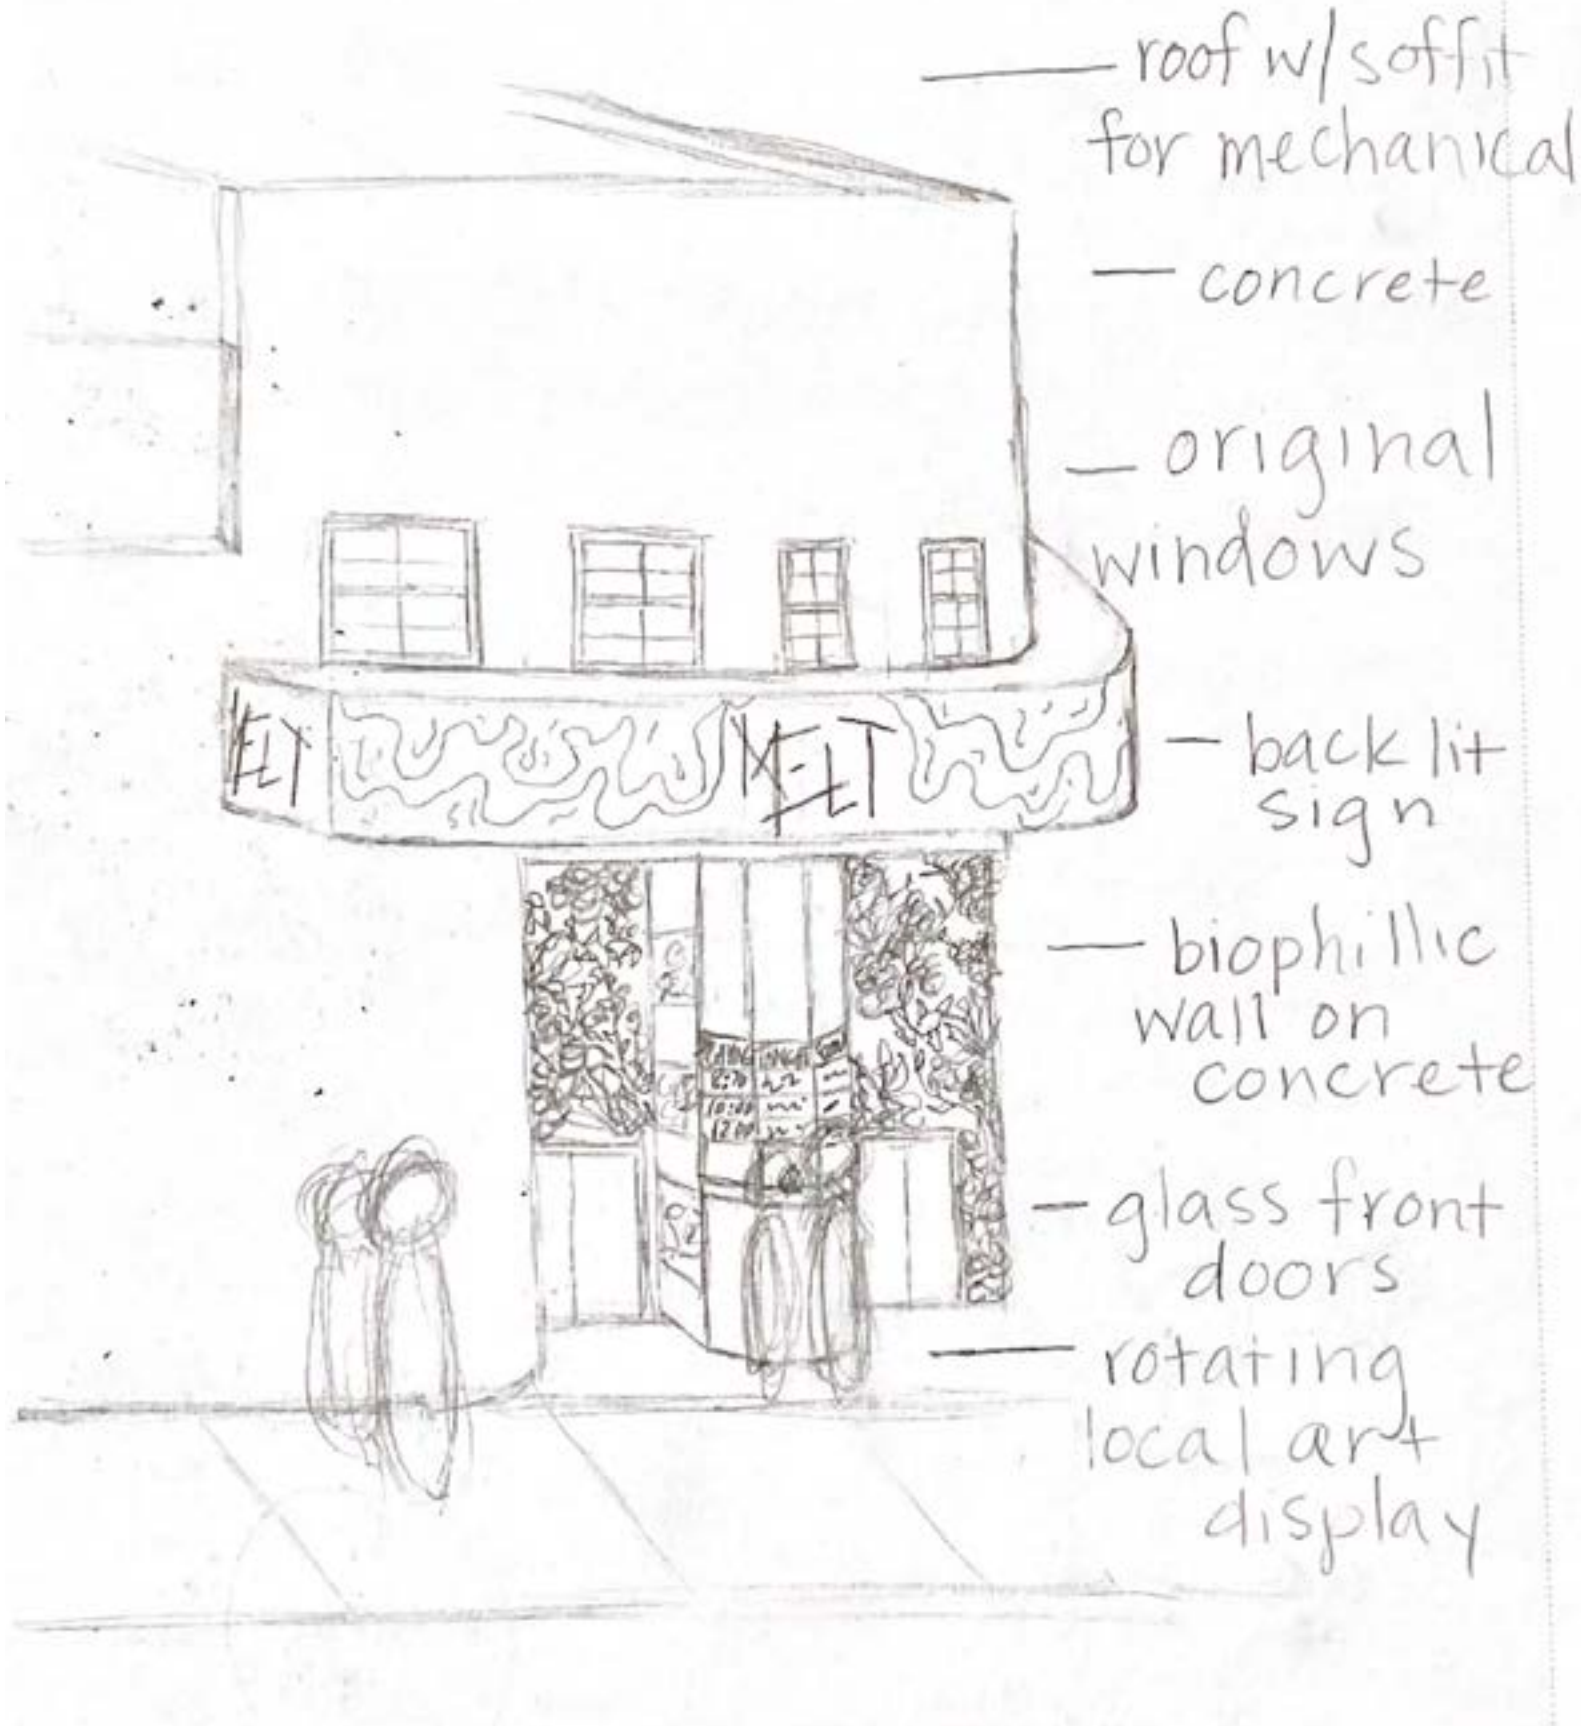 roof w/ soffit
for mechanical
concrete
original
windows
ELT
MELT
back lit
sign
biophillic
wall on
concrete
8:30
10:00
12:00
glass front
doors
rotating
local art
display